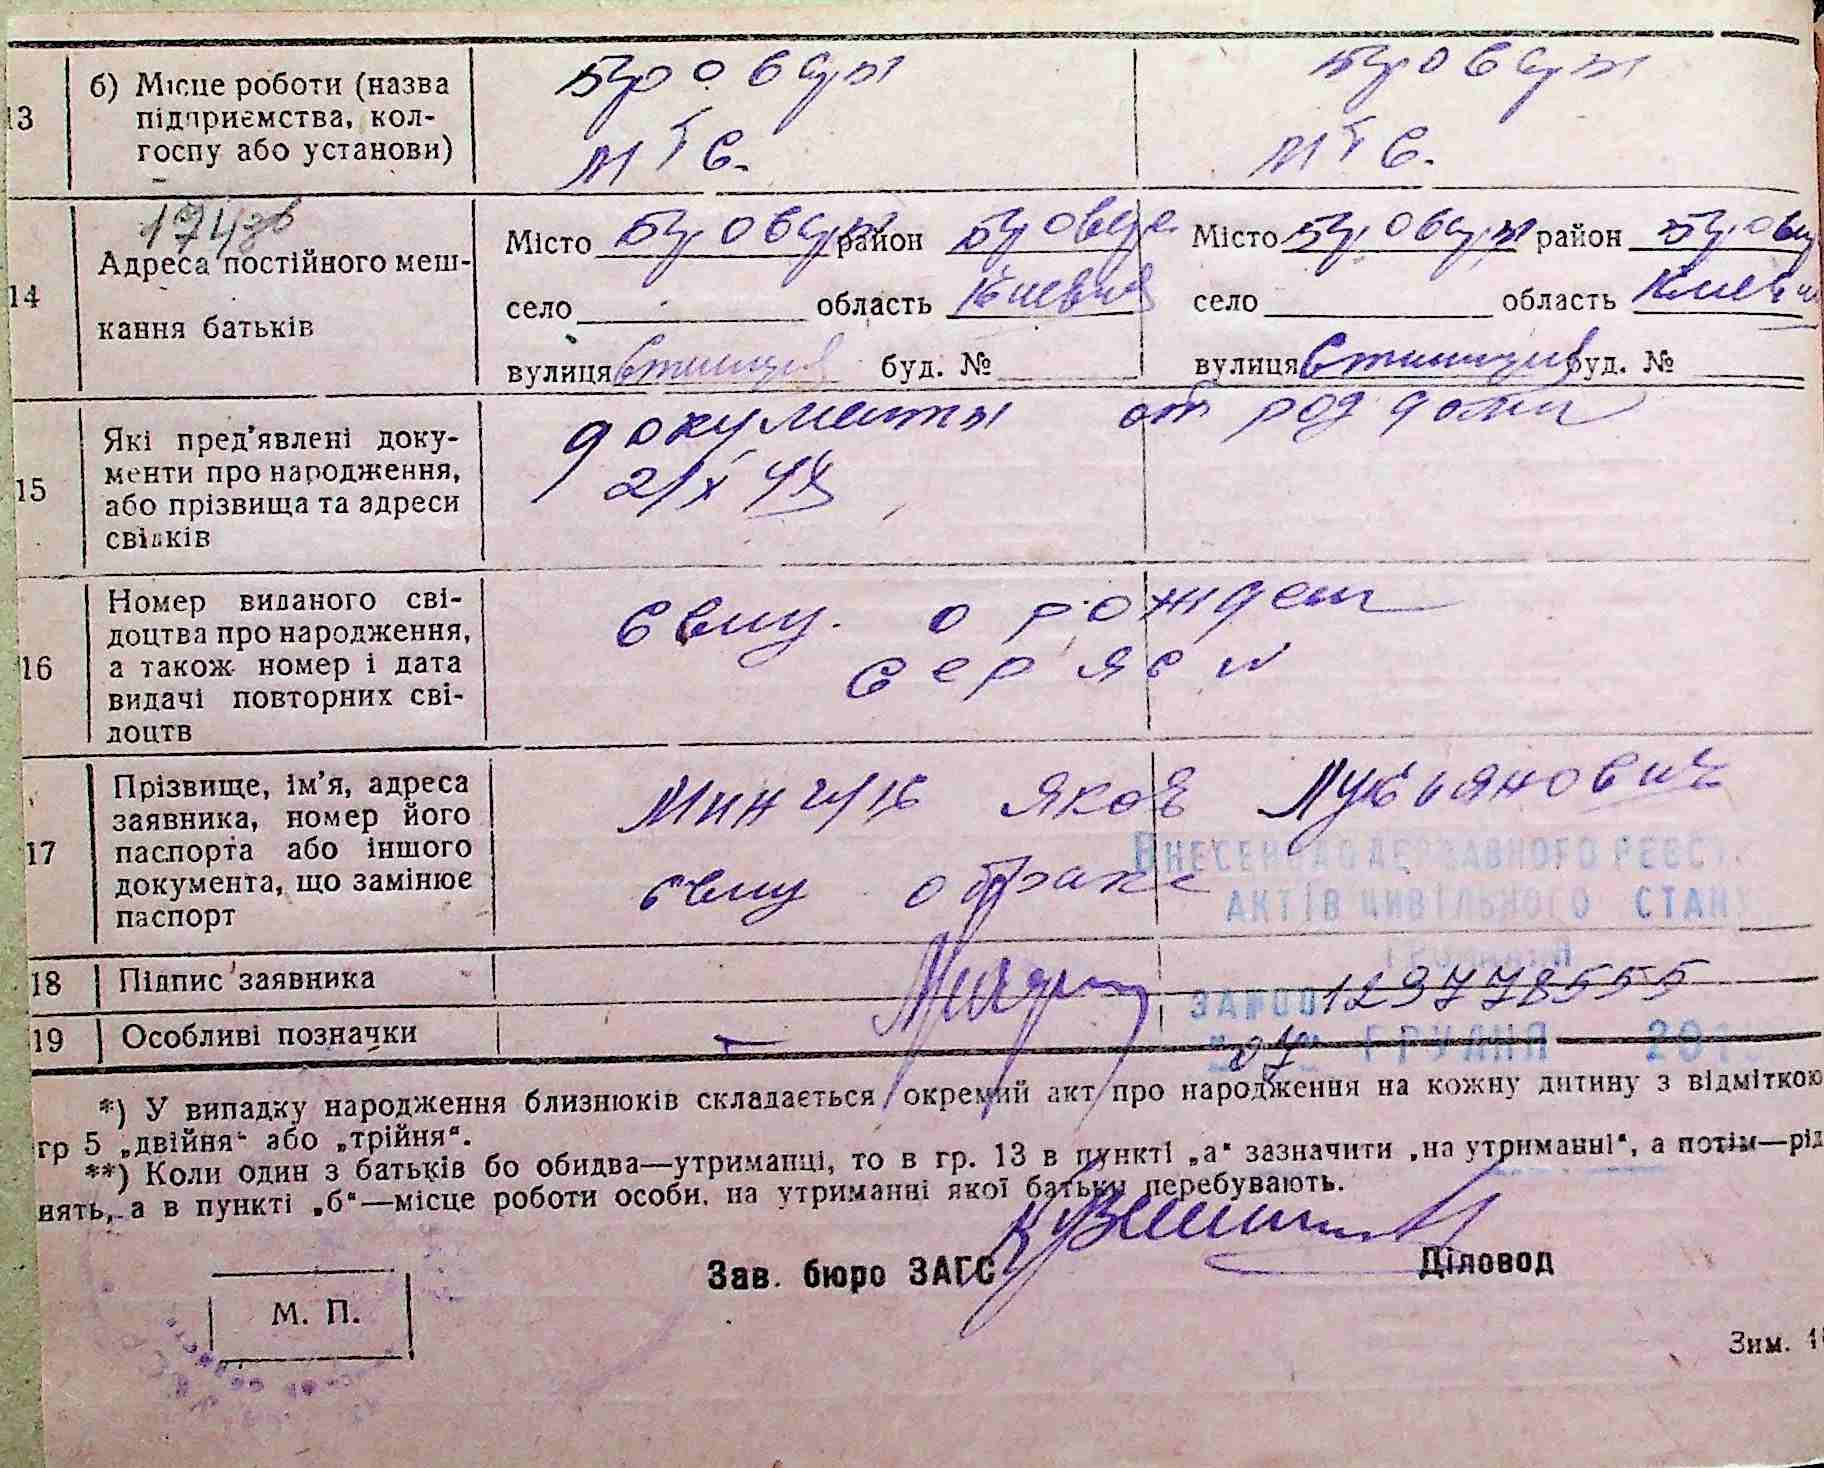 13 б) Місце роботи (назва підприємства, колгоспу або установи)
Бровары Бровары
МТС. МТС.
14 Адреса постійного мешкання батьків
Місто Бровары район Бровар Місто Бровары район Бровар
село область Киевск село область Киевск
вулиця буд. № вулиця буд. №
15 Які пред'явлені документи про народження, або прізвища та адреси свідків
документы от род дома
2/X 48
16 Номер виданого свідоцтва про народження, а також номер і дата видачі повторних свідоцтв
свид. о рожден
серия
17 Прізвище, ім'я, адреса заявника, номер його паспорта або іншого документа, що замінює паспорт
Яков Лукьянович
свид о браке
ВНЕСЕНО ДО ДЕРЖАВНОГО РЕЄСТ
АКТІВ ЦИВІЛЬНОГО СТАНУ
ГРОМАДЯН
18 Підпис заявника
ЗА № 00129778555
19 Особливі позначки —
"07" ГРУДНЯ 201
*) У випадку народження близнюків складається окремий акт про народження на кожну дитину з відміткою
гр 5 „двійня" або „трійня".
**) Коли один з батьків бо обидва—утриманці, то в гр. 13 в пункті „а" зазначити „на утриманні", а потім—рід
нять, а в пункті „б"—місце роботи особи, на утриманні якої батьки перебувають.
Зав. бюро ЗАГС Діловод
М. П.
Зим.